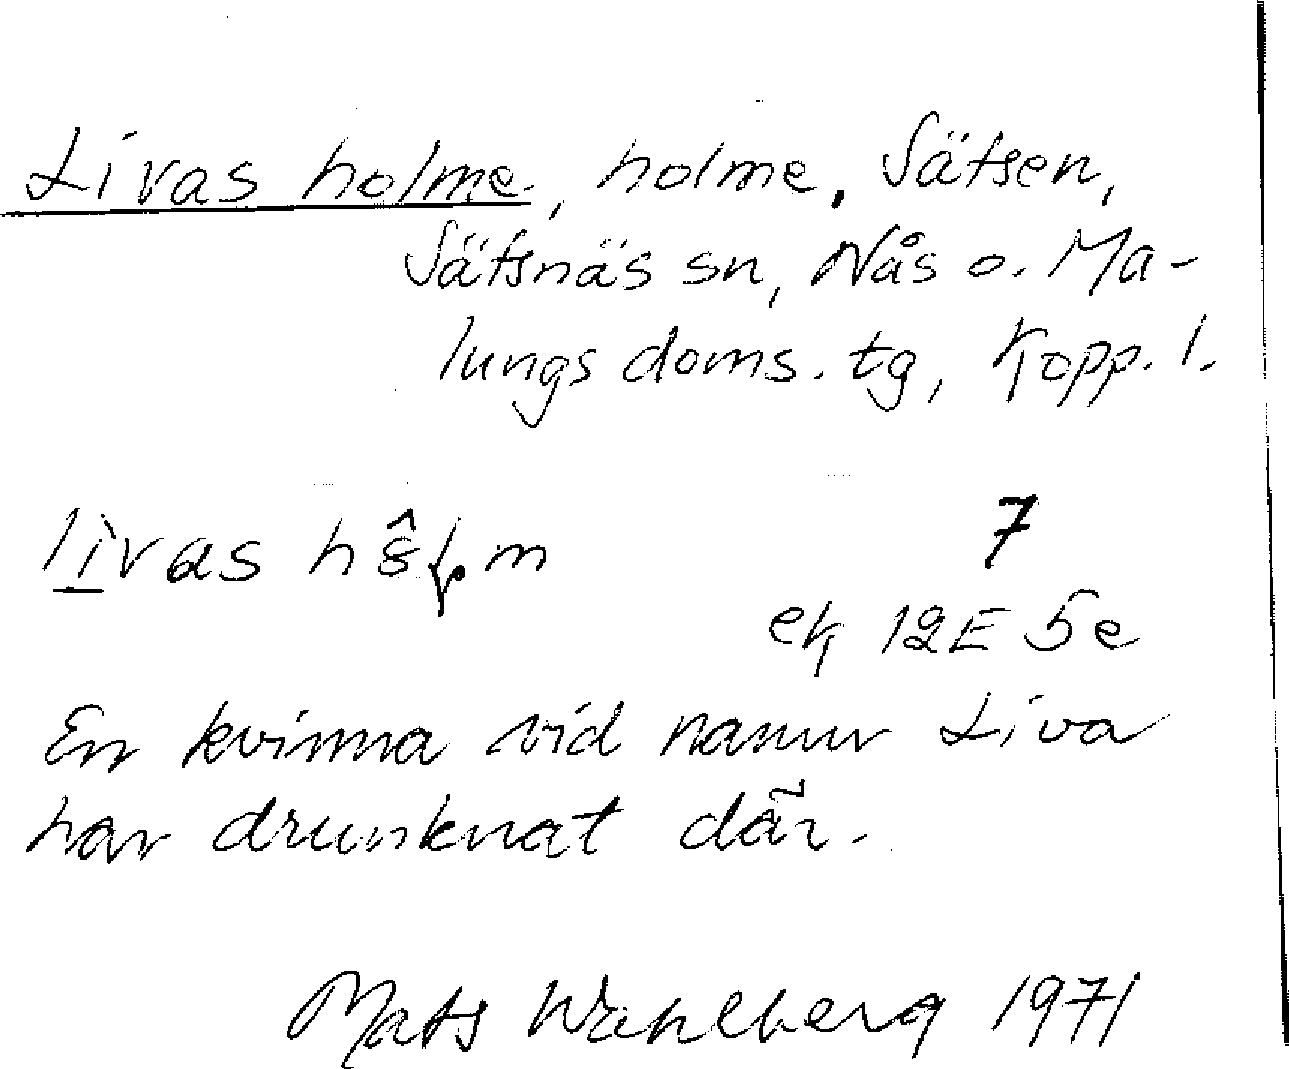 Livas holme, holme, Sätsen,
Sätsnäs sn, Nås o. Ma-
lungs doms. tg, Kopp. l.
lìvas
7
ek 12E 5e
En kvinna vid namn Liva
har drunknat där.
Mats Wahlberg 1971